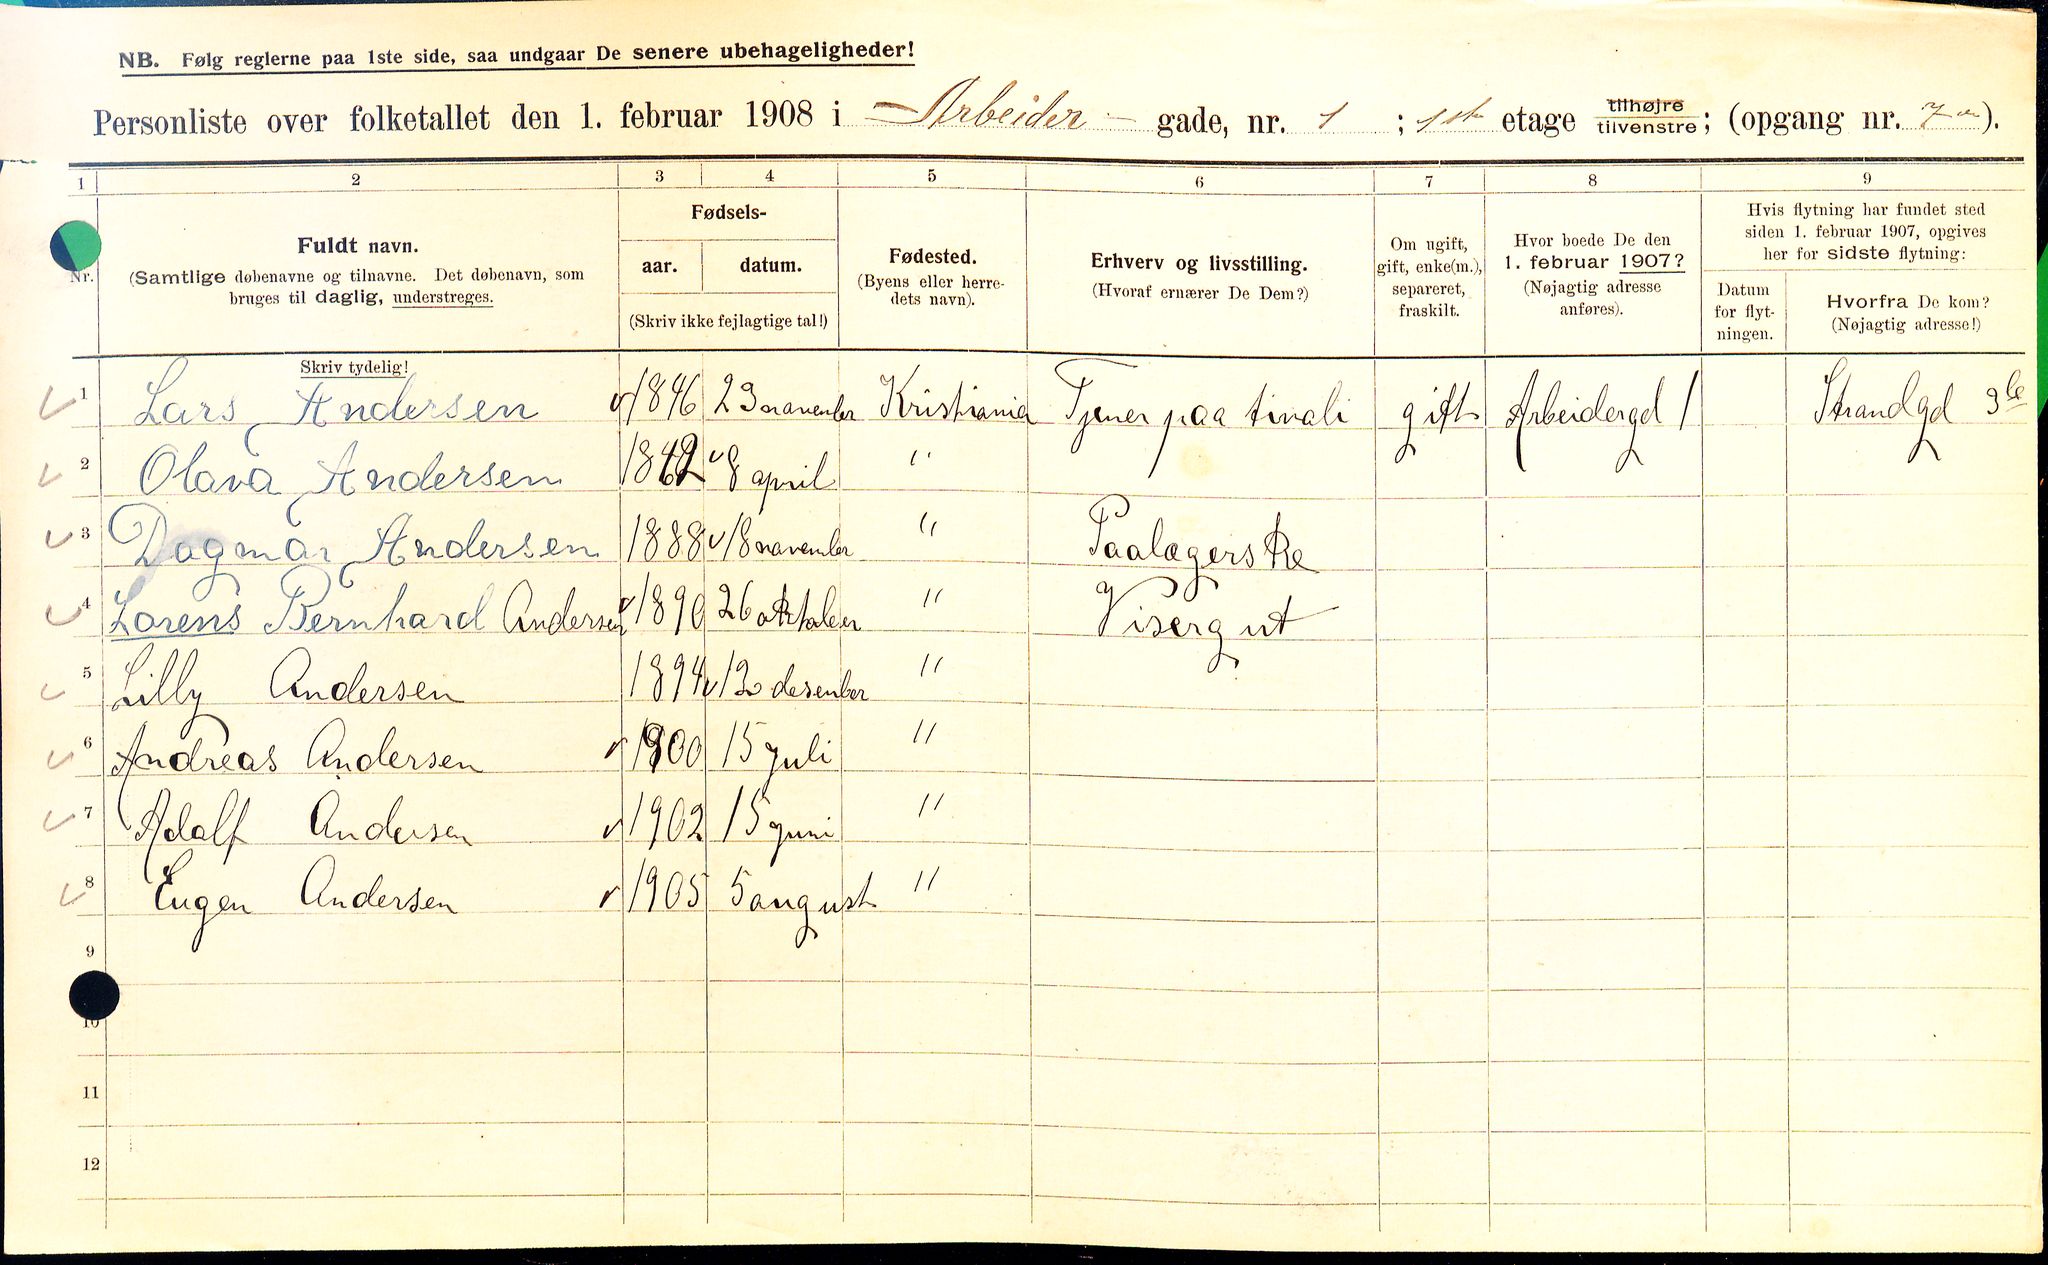 NB. Følg reglerne paa 1ste side, saa undgaar De senere ubehageligheder!
Personliste over folketallet den 1. februar 1908 i Arbeider- gade, nr. 1 ; 1st etage tilhøjre tilvenstre; (opgang nr. 7).
1 2 3 4 5 6 7 8 9
Nr.
Fuldt navn.
(Samtlige døbenavne og tilnavne. Det døbenavn, som
bruges til daglig, understreges.
Skriv tydelig!
Fødsels-
aar. datum.
(Skriv ikke fejlagtige tal!)
Fødested.
(Byens eller herre-
dets navn).
Erhverv og livsstilling.
(Hvoraf ernærer De Dem?)
Om ugift,
gift, enke(m.),
separeret,
fraskilt.
Hvor boede De den
1. februar 1907?
(Nøjagtig adresse
anføres).
Hvis flytning har fundet sted
siden 1. februar 1907, opgives
her for sidste flytning:
Datum
for flyt-
ningen.
Hvorfra De kom?
(Nøjagtig adresse!)
1 Lars Andersen 1846 23 november Kristiania Tjener paa tivoli gift Arbeidergd 1 Strandgd
2 Olava Andersen 8 april "
3 Dagmar Andersen 1888 18 november " Paalægerske
4 Lorens Bernhard Andersen 1890 26 oktober " Visergut
5 Lilly Andersen 1894 12 desember "
6 Andreas Andersen 1900 15 juli "
7 Adolf Andersen 1902 15 juni "
8 Eugen Andersen 1905 5 august "
9
10
11
12